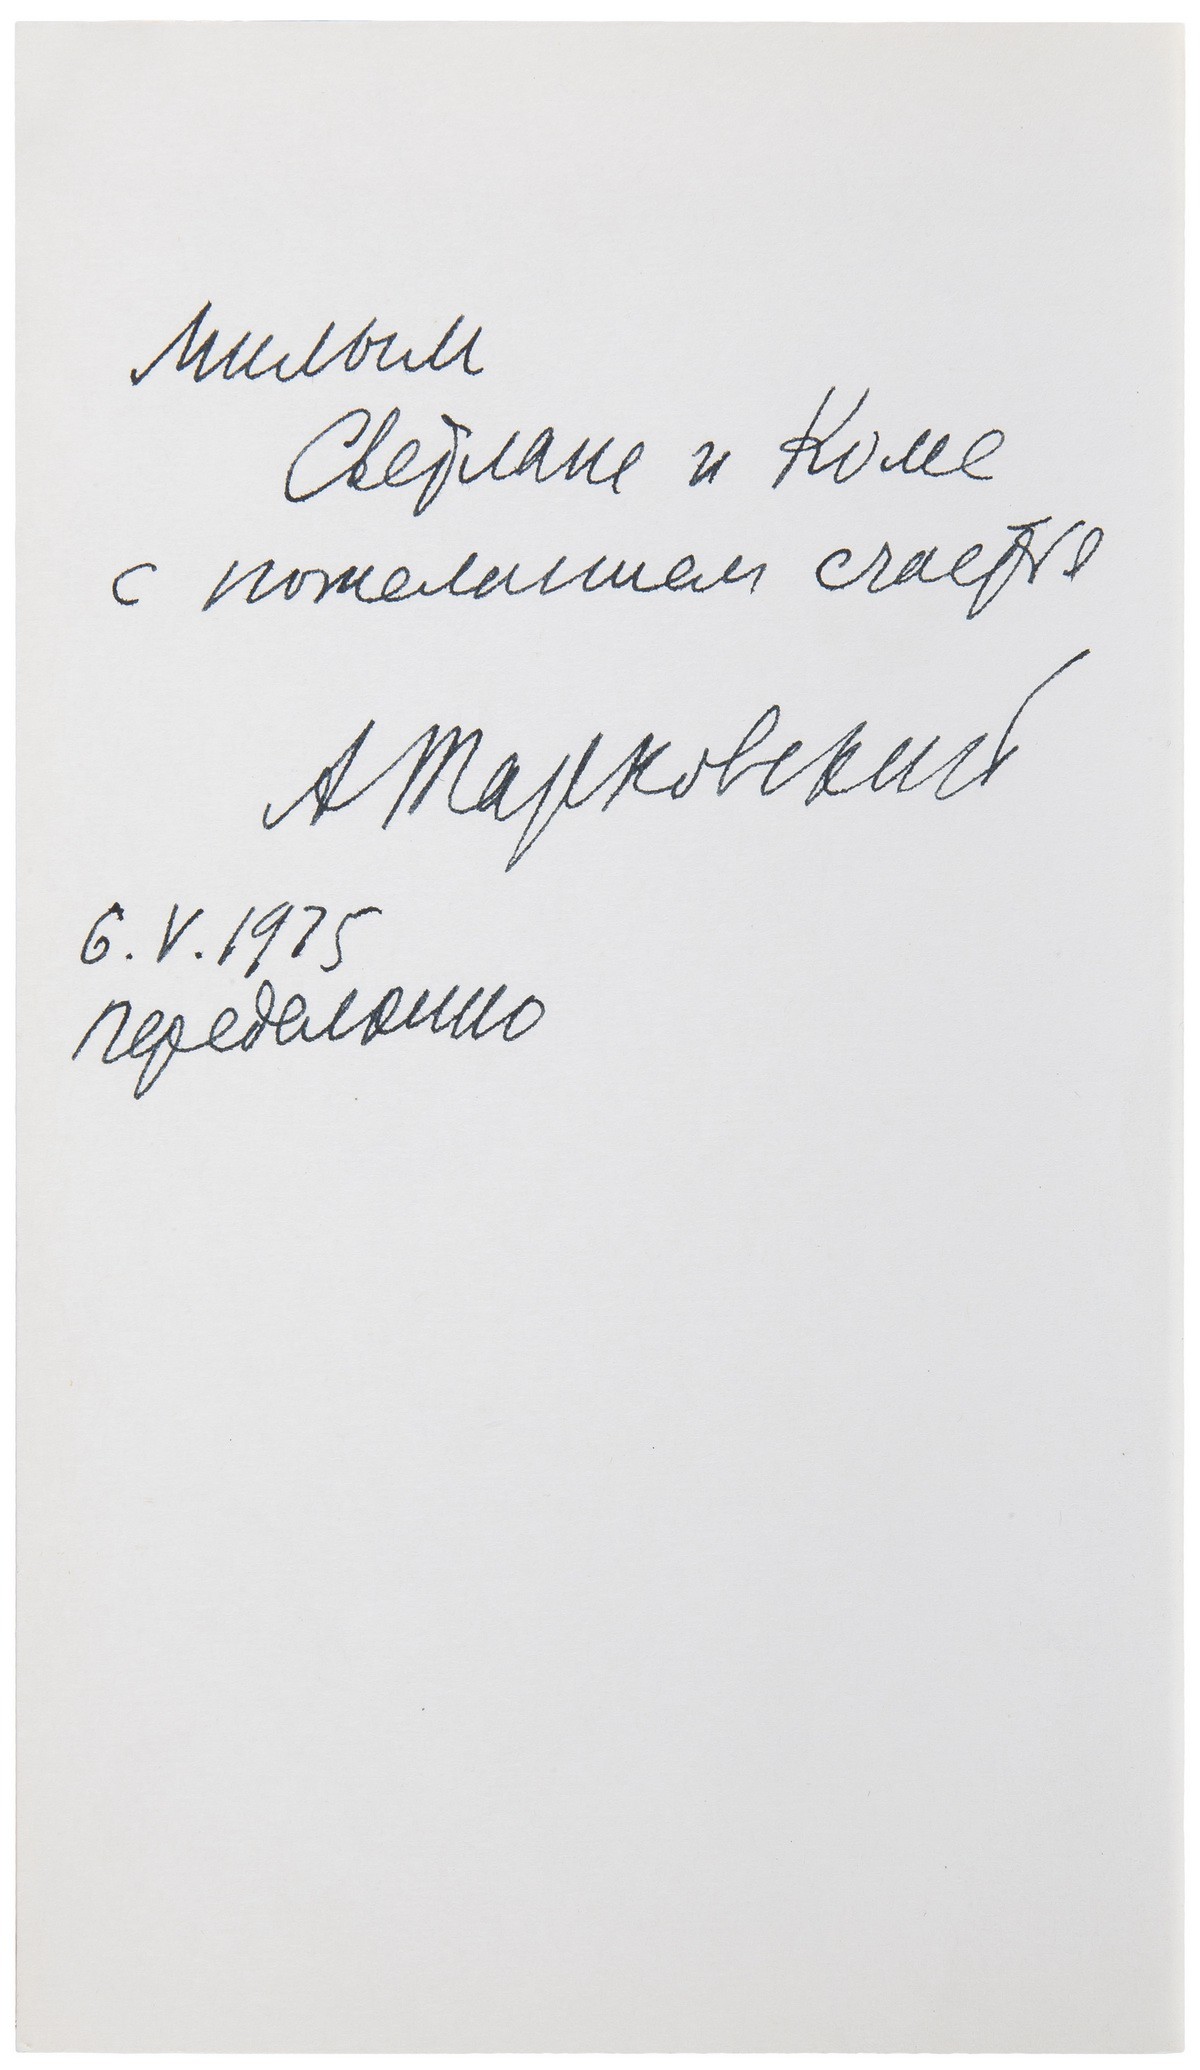 Милым
Светлане и Коме
с пожеланием счастья
А Тарковский
6.V.1975
Переделкино